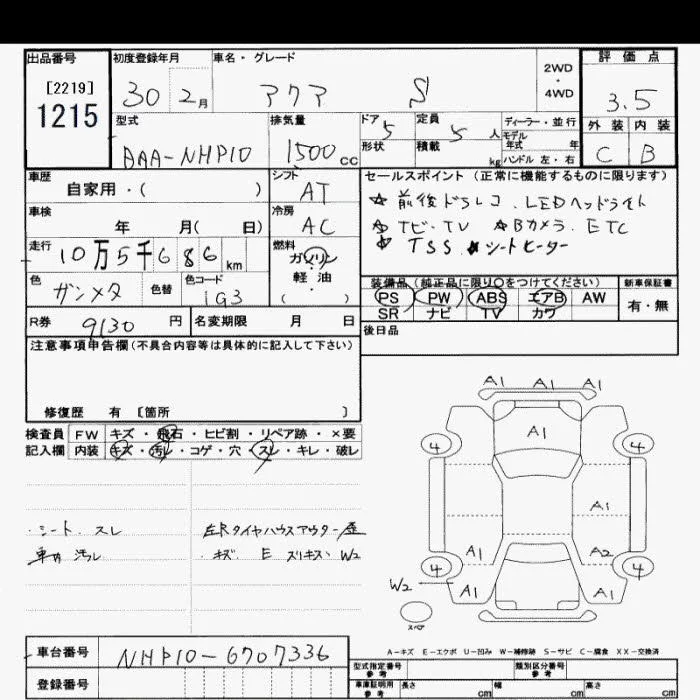 出品番号 初度登録年月 車名・グレード 2WD・4WD 評価点
[2219]
1215
30 2月 アクア S 3.5
型式 排気量 ドア 5 定員 5人 ディーラー・並行
形状 積載 kg モデル年式 年
ハンドル 左・右
外装 内装
DAA-NHP10 1500cc C B
車歴 シフト セールスポイント (正常に機能するものに限ります)
自家用・( ) AT
☆ 前後ドラレコ. LEDヘッドライト
車検 冷房
年 月( 日) AC
☆ TビTV ☆Bカメラ. ETC
☆ TSS ☆シートヒーター
走行 燃料
10万5千686km ガソリン・軽油・( )
色 ガンメタ 色替 色コード 1G3
装備品(純正品に限り○をつけてください) 新車保証書
PS PW ABS エアB AW 有・無
SR ナビ TV カワ
R券 9130円 名変期限 月 日
後日品
注意事項申告欄(不具合内容等は具体的に記入して下さい)
修復歴 有 〔箇所 〕
検査員記入欄 FW キズ・飛石・ヒビ割・リペア跡・×要
内装 キズ・汚レ・コゲ・穴・スレ・キレ・破レ
・シート. スレ
車内 汚レ
左Rタイヤハウスアウター歪
・キズ E スリキズ W2
A1 A1 A1
A1
4 4
A1
A1 A2
4 4
W2 A1 A1
スペア
A-キズ E-エクボ U-凹み W-補修跡 S-サビ C-腐食 XX-交換済
車台番号 NHP10-6707336
登録番号
型式指定番号 参考 類別区分番号 参考
車庫証明用 参考 長さ cm 幅 cm 高さ cm